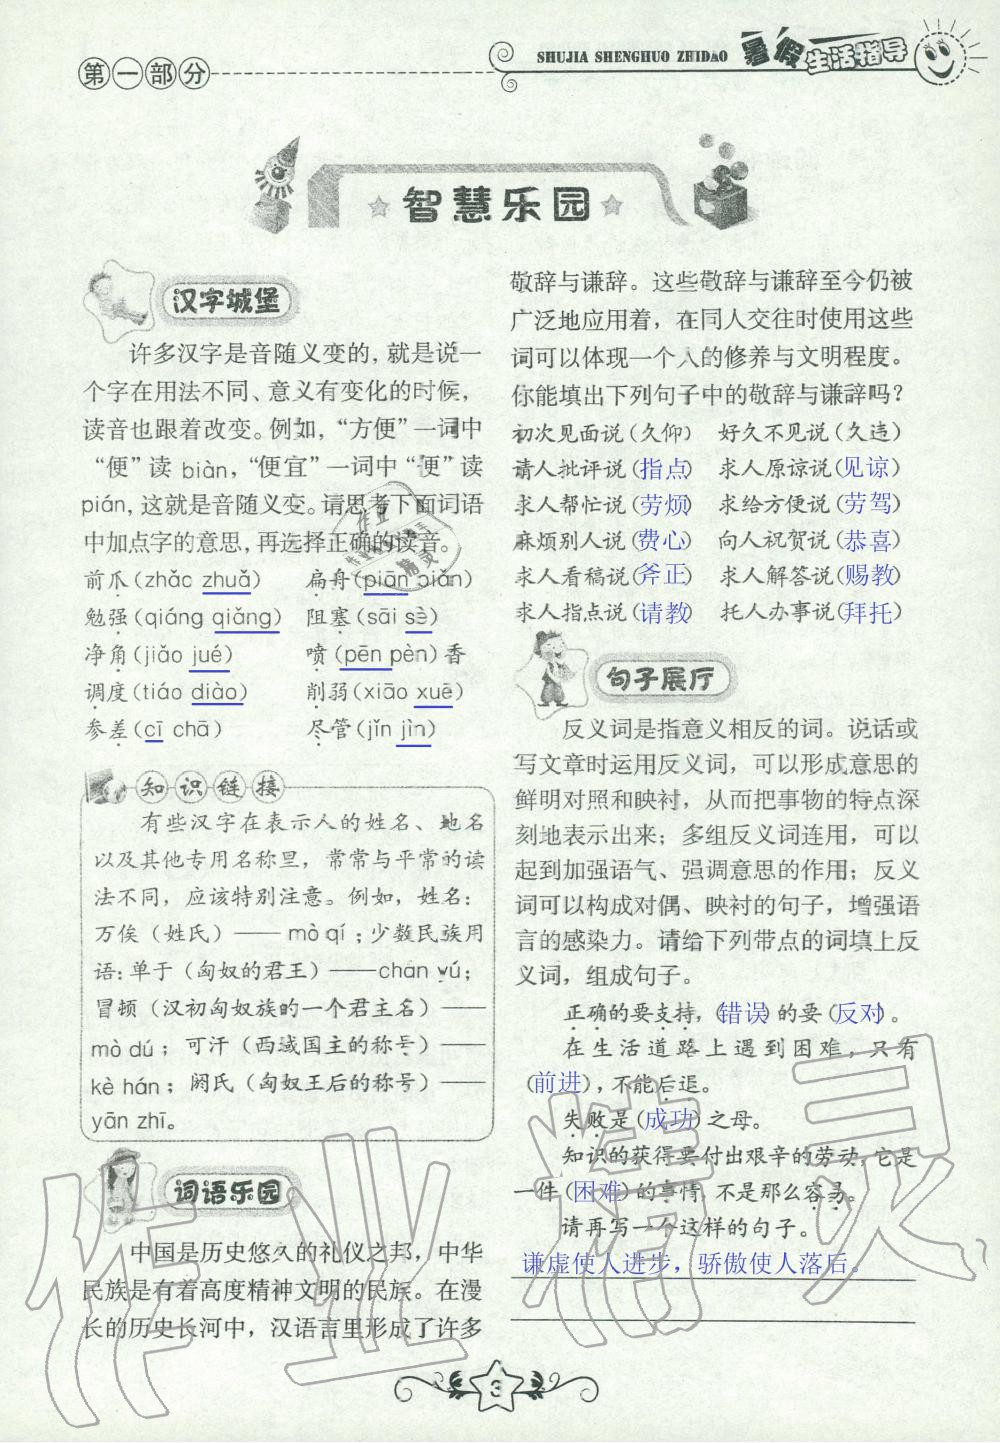 第一部分
SHUJIA SHENGHUO ZHIDAO
暑假生活指导
智慧乐园
汉字城堡
许多汉字是音随义变的，就是说一
个字在用法不同、意义有变化的时候，
读音也跟着改变。例如，“方便”一词中
“便”读 biàn，“便宜”一词中“便”读
pián，这就是音随义变。请思考下面词语
中加点字的意思，再选择正确的读音。
前爪(zhǎo zhuǎ) 扁舟(piān biǎn)
勉强(qiáng qiǎng) 阻塞(sāi sè)
净角(jiǎo jué) 喷(pēn pèn)香
调度(tiáo diào) 削弱(xiāo xuē)
参差(cī chā) 尽管(jǐn jìn)
知识链接
有些汉字在表示人的姓名、地名
以及其他专用名称里，常常与平常的读
法不同，应该特别注意。例如，姓名：
万俟（姓氏）—— mò qí；少数民族用
语：单于（匈奴的君王）——chán yú；
冒顿（汉初匈奴族的一个君主名）——
mò dú；可汗（西域国主的称号）——
kè hán；阏氏（匈奴王后的称号）——
yān zhī。
词语乐园
中国是历史悠久的礼仪之邦，中华
民族是有着高度精神文明的民族。在漫
长的历史长河中，汉语言里形成了许多
敬辞与谦辞。这些敬辞与谦辞至今仍被
广泛地应用着，在同人交往时使用这些
词可以体现一个人的修养与文明程度。
你能填出下列句子中的敬辞与谦辞吗？
初次见面说（久仰） 好久不见说（久违）
请人批评说(指点) 求人原谅说(见谅)
求人帮忙说(劳烦) 求给方便说(劳驾)
麻烦别人说(费心) 向人祝贺说(恭喜)
求人看稿说(斧正) 求人解答说(赐教)
求人指点说(请教) 托人办事说(拜托)
句子展厅
反义词是指意义相反的词。说话或
写文章时运用反义词，可以形成意思的
鲜明对照和映衬，从而把事物的特点深
刻地表示出来；多组反义词连用，可以
起到加强语气、强调意思的作用；反义
词可以构成对偶、映衬的句子，增强语
言的感染力。请给下列带点的词填上反
义词，组成句子。
正确的要支持，(错误)的要(反对)。
在生活道路上遇到困难，只有
(前进)，不能后退。
失败是(成功)之母。
知识的获得要付出艰辛的劳动，它是
一件(困难)的事情，不是那么容易。
请再写一个这样的句子。
谦虚使人进步，骄傲使人落后。
3
作业精灵